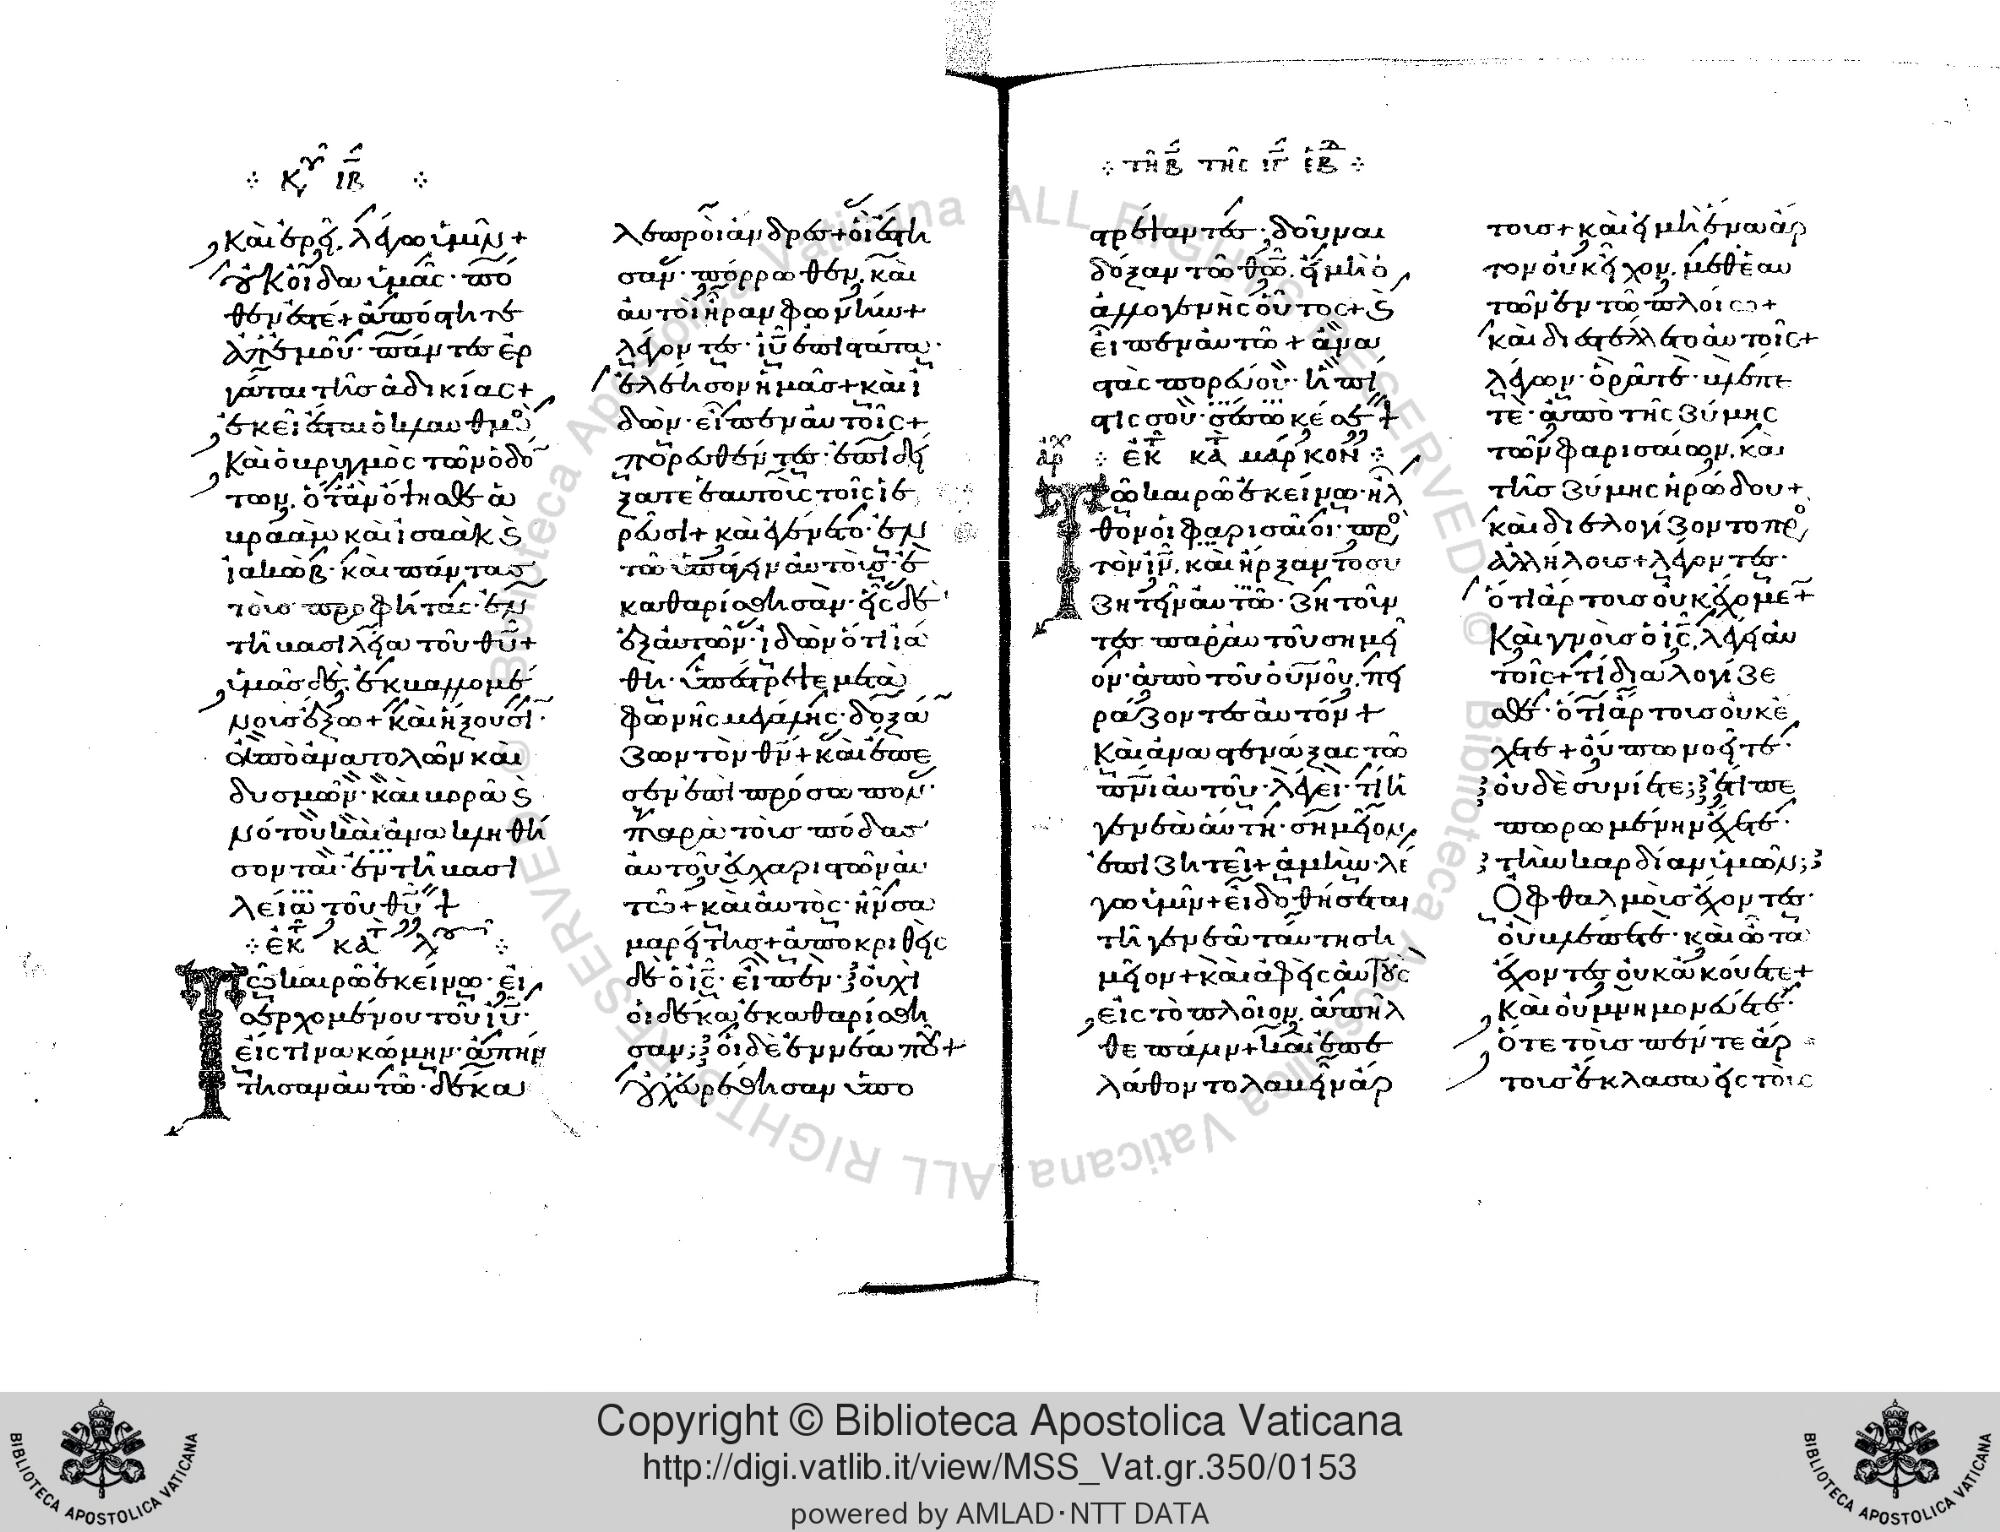 Κυ ΙΒ
καὶ ἐρεῖ, λέγω ὑμῖν +
οὐκ οἶδα ὑμᾶς · πό
θεν ἐστέ + ἀπόστητε
ἀπ' ἐμοῦ · πάντες ἐρ
γάται τῆς ἀδικίας +
ἐκεῖ ἔσται ὁ κλαυθμὸ
καὶ ὁ βρυγμὸς τῶν ὀδό
των, ὅταν ὄψησθε ἀ
βραὰμ καὶ ἰσαὰκ ϗ
ἰακώβ · καὶ πάντας
τοὺς προφήτας · ἐν
τῆ βασιλεία τοῦ θυ +
ὑμᾶς δὲ, ἐκβαλλομέ
νους ἔξω + καὶ ἥξουσι ·
ἀπὸ ἀνατολῶν καὶ
δυσμῶν · καὶ βορρᾶ ϗ
νότου καὶ ἀνακλιθή
σονται · ἐν τῆ βασι
λεία τοῦ θυ +
ἐκ κατ λου
Τῶ καιρῶ ἐκείνω · εἰ
σερχομένου τοῦ ιυ ·
εἴς τινα κώμην · ἀπήν
τησαν αὐτῶ · δέκα
λεπροὶ ἄνδρες + οἳ ἔστη
σαν · πόρρωθεν, καὶ
αὐτοὶ ἦραν φωνὴν +
λέγοντες · ιυ ἐπιστάτα ·
ἐλέησον ἡμᾶς + καὶ ἰ
δὼν · εἶπεν αὐτοῖς +
πορευθέντες · ἐπιδεί
ξατε ἑαυτοὺς τοῖς ἱε
ρεῦσι + καὶ ἐγένετο · ἐν
τῶ ὑπάγειν αὐτοὺς · ἐ
καθαρίσθησαν · εἷς δὲ
ἐξ αὐτῶν · ἰδὼν ὅτι ἰά
θη · ὑπέστρεψε μετὰ
φωνῆς μεγάλης · δοξά
ζων τὸν θν + καὶ ἔπε
σεν ἐπὶ πρόσωπον ·
παρὰ τοὺς πόδας
αὐτοῦ εὐχαριστῶν αὐ
τῶ + καὶ αὐτὸς · ἦν σα
μαρείτης + ἀποκριθεὶς
δὲ ὁ ις · εἶπεν · οὐχὶ
οἱ δέκα ἐκαθαρίσθη
σαν; οἱ δὲ ἐννέα ποῦ +
οὐχ εὑρέθησαν ὑπο
τῆ Β τῆς ΙΓ ἑβδ
στρέψαντες · δοῦναι
δόξαν τῶ θω, εἰ μὴ ὁ
ἀλλογενὴς οὗτος + ϗ
εἶπεν αὐτῶ + ἀνα
στὰς πορεύου · ἡ πί
στις σου · σέσωκέ σε +
ἐκ κατὰ μάρκον
Τῶ καιρῶ ἐκείνω · ἦλ
θον οἱ φαρισαῖοι · πρὸ
τὸν ιν, καὶ ἤρξαντο συ
ζητεῖν αὐτῶ · ζητοῦν
τες παρ' αὐτοῦ σημεῖ
ον · ἀπὸ τοῦ οὐνου, πει
ράζοντες αὐτόν +
καὶ ἀναστενάξας τῶ
πνι αὐτοῦ · λέγει · τί ἡ
γενεὰ αὕτη · σημεῖον,
ἐπιζητεῖ + ἀμὴν λέ
γω ὑμῖν + εἰ δοθήσεται
τῆ γενεᾶ ταύτη ση
μεῖον + καὶ ἀφεὶς αὐτοὺς
εἰς τὸ πλοῖον, ἀπῆλ
θε πάλιν + καὶ ἐπε
λάθοντο λαβεῖν ἄρ
τους + καὶ εἰ μὴ ἕνα ἄρ
τον οὐκ εἶχον, μεθ' ἑαυ
τῶν ἐν τῶ πλοίω +
καὶ διεστέλλετο αὐτοῖς +
λέγων · ὁρᾶτε · βλέπε
τε · ἀπὸ τῆς ζύμης
τῶν φαρισαίων, καὶ
τῆς ζύμης ἡρώδου +
καὶ διελογίζοντο πρὸ
ἀλλήλους + λέγοντες ·
ὅτι ἄρτους οὐκ ἔχομεν +
καὶ γνοὺς ὁ ις, λέγει αὐ
τοῖς + τί διαλογίζε
σθε · ὅτι ἄρτους οὐκ ἔ
χετε + οὔπω νοεῖτε ·
οὐδὲ συνίετε; ἔτι πε
πωρωμένην ἔχετε ·
τὴν καρδίαν ὑμῶν;
Ὀφθαλμοὺς ἔχοντες ·
οὐ βλέπετε · καὶ ὦτα
ἔχοντες οὐκ ἀκούετε +
καὶ οὐ μνημονεύετε ·
ὅτε τοὺς πέντε ἄρ
τους ἔκλασα εἰς τοὺς
Copyright © Biblioteca Apostolica Vaticana
http://digi.vatlib.it/view/MSS_Vat.gr.350/0153
powered by AMLAD·NTT DATA
BIBLIOTECA APOSTOLICA VATICANA
BIBLIOTECA APOSTOLICA VATICANA
© Biblioteca Apostolica Vaticana ALL RIGHTS RESERVED © Biblioteca Apostolica Vaticana ALL RIGHTS RESERVED